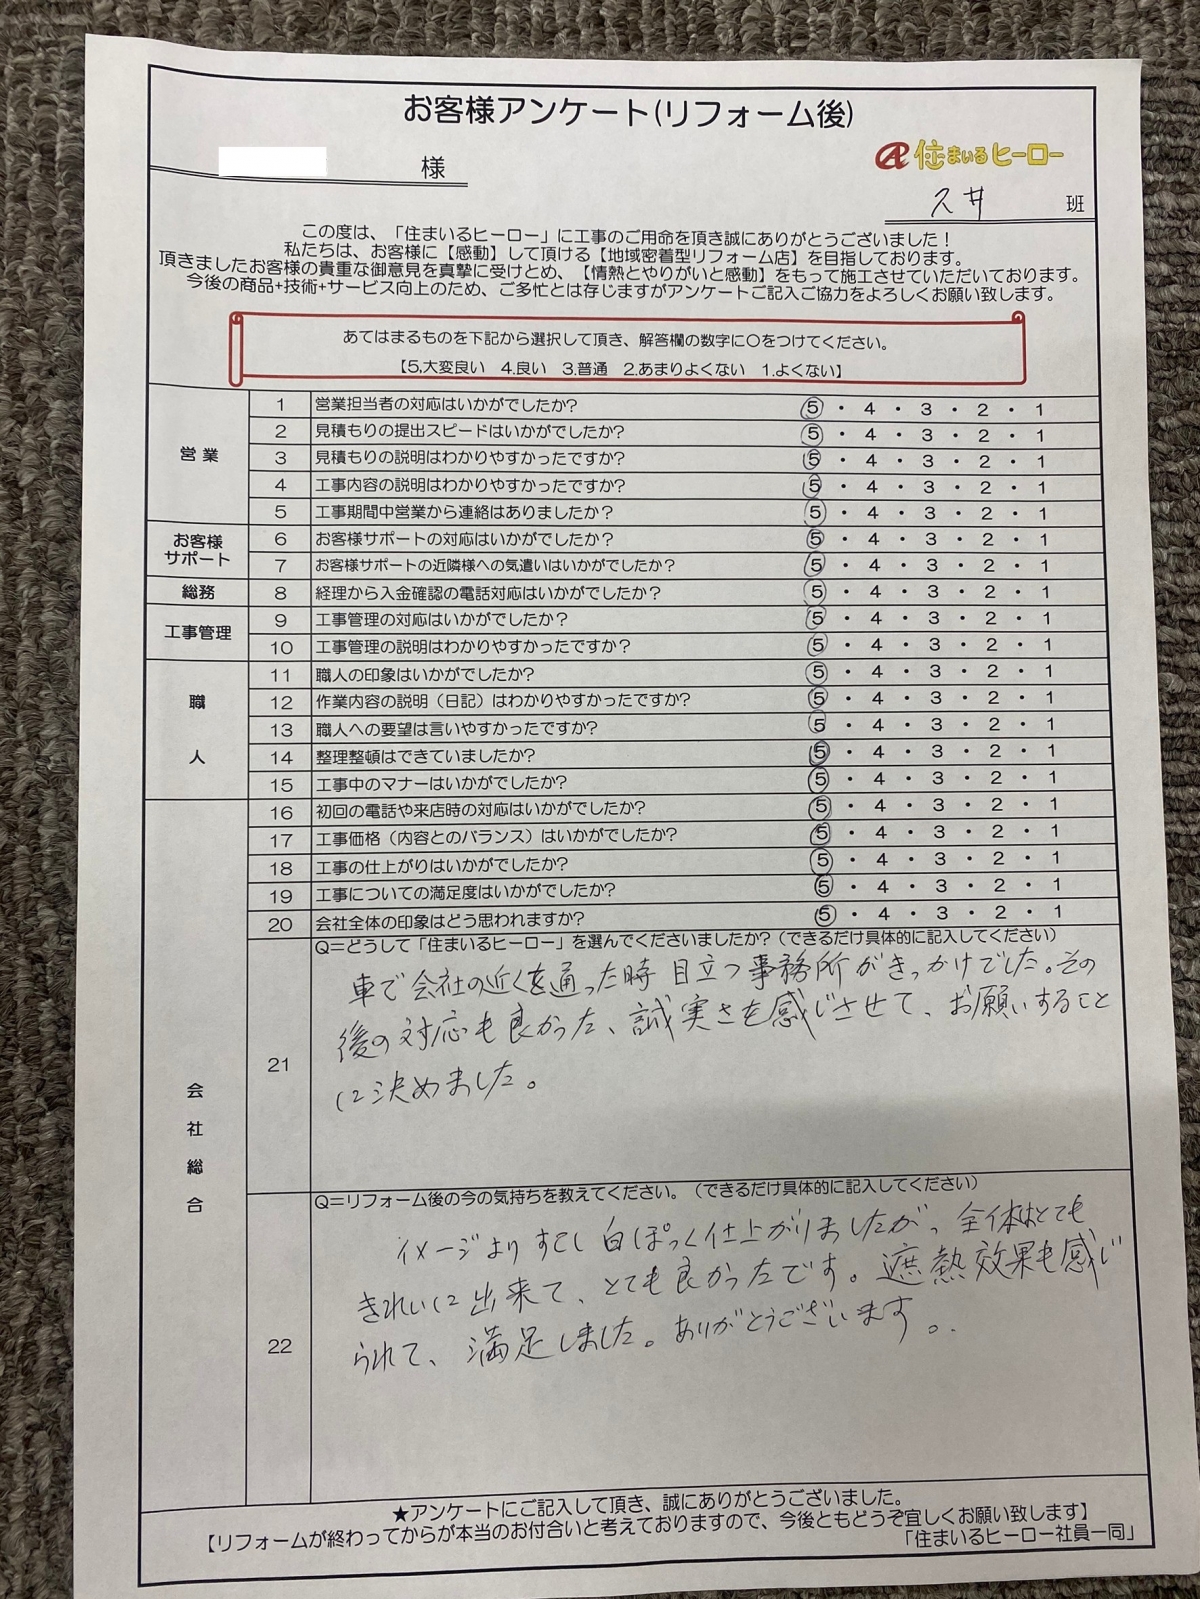 お客様アンケート(リフォーム後)
様
住まいるヒーロー
久井 班
この度は、「住まいるヒーロー」に工事のご用命を頂き誠にありがとうございました！
私たちは、お客様に【感動】して頂ける【地域密着型リフォーム店】を目指しております。
頂きましたお客様の貴重な御意見を真摯に受けとめ、【情熱とやりがいと感動】をもって施工させていただいております。
今後の商品+技術+サービス向上のため、ご多忙とは存じますがアンケートご記入ご協力をよろしくお願い致します。
あてはまるものを下記から選択して頂き、解答欄の数字に〇をつけてください。
【5,大変良い 4.良い 3.普通 2.あまりよくない 1.よくない】
営業
1 営業担当者の対応はいかがでしたか？ 5・4・3・2・1
2 見積もりの提出スピードはいかがでしたか？ 5・4・3・2・1
3 見積もりの説明はわかりやすかったですか？ 5・4・3・2・1
4 工事内容の説明はわかりやすかったですか？ 5・4・3・2・1
5 工事期間中営業から連絡はありましたか？ 5・4・3・2・1
お客様
サポート
6 お客様サポートの対応はいかがでしたか？ 5・4・3・2・1
7 お客様サポートの近隣様への気遣いはいかがでしたか？ 5・4・3・2・1
総務
8 経理から入金確認の電話対応はいかがでしたか？ 5・4・3・2・1
工事管理
9 工事管理の対応はいかがでしたか？ 5・4・3・2・1
10 工事管理の説明はわかりやすかったですか？ 5・4・3・2・1
職
人
11 職人の印象はいかがでしたか？ 5・4・3・2・1
12 作業内容の説明（日記）はわかりやすかったですか？ 5・4・3・2・1
13 職人への要望は言いやすかったですか？ 5・4・3・2・1
14 整理整頓はできていましたか？ 5・4・3・2・1
15 工事中のマナーはいかがでしたか？ 5・4・3・2・1
会
社
総
合
16 初回の電話や来店時の対応はいかがでしたか？ 5・4・3・2・1
17 工事価格（内容とのバランス）はいかがでしたか？ 5・4・3・2・1
18 工事の仕上がりはいかがでしたか？ 5・4・3・2・1
19 工事についての満足度はいかがでしたか？ 5・4・3・2・1
20 会社全体の印象はどう思われますか？ 5・4・3・2・1
21
Q=どうして「住まいるヒーロー」を選んでくださいましたか？（できるだけ具体的に記入してください）
車で会社の近くを通った時目立つ事務所がきっかけでした。その
後の対応も良かった、誠実さを感じさせて、お願いすること
に決めました。
22
Q=リフォーム後の今の気持ちを教えてください。（できるだけ具体的に記入してください）
イメージよりすこし白ぽっく仕上がりましたが、全体はとても
きれいに出来て、とても良かったです。遮熱効果も感じ
られて、満足しました。ありがとうございます。
★アンケートにご記入して頂き、誠にありがとうございました。
【リフォームが終わってからが本当のお付合いと考えておりますので、今後ともどうぞ宜しくお願い致します】
「住まいるヒーロー社員一同」